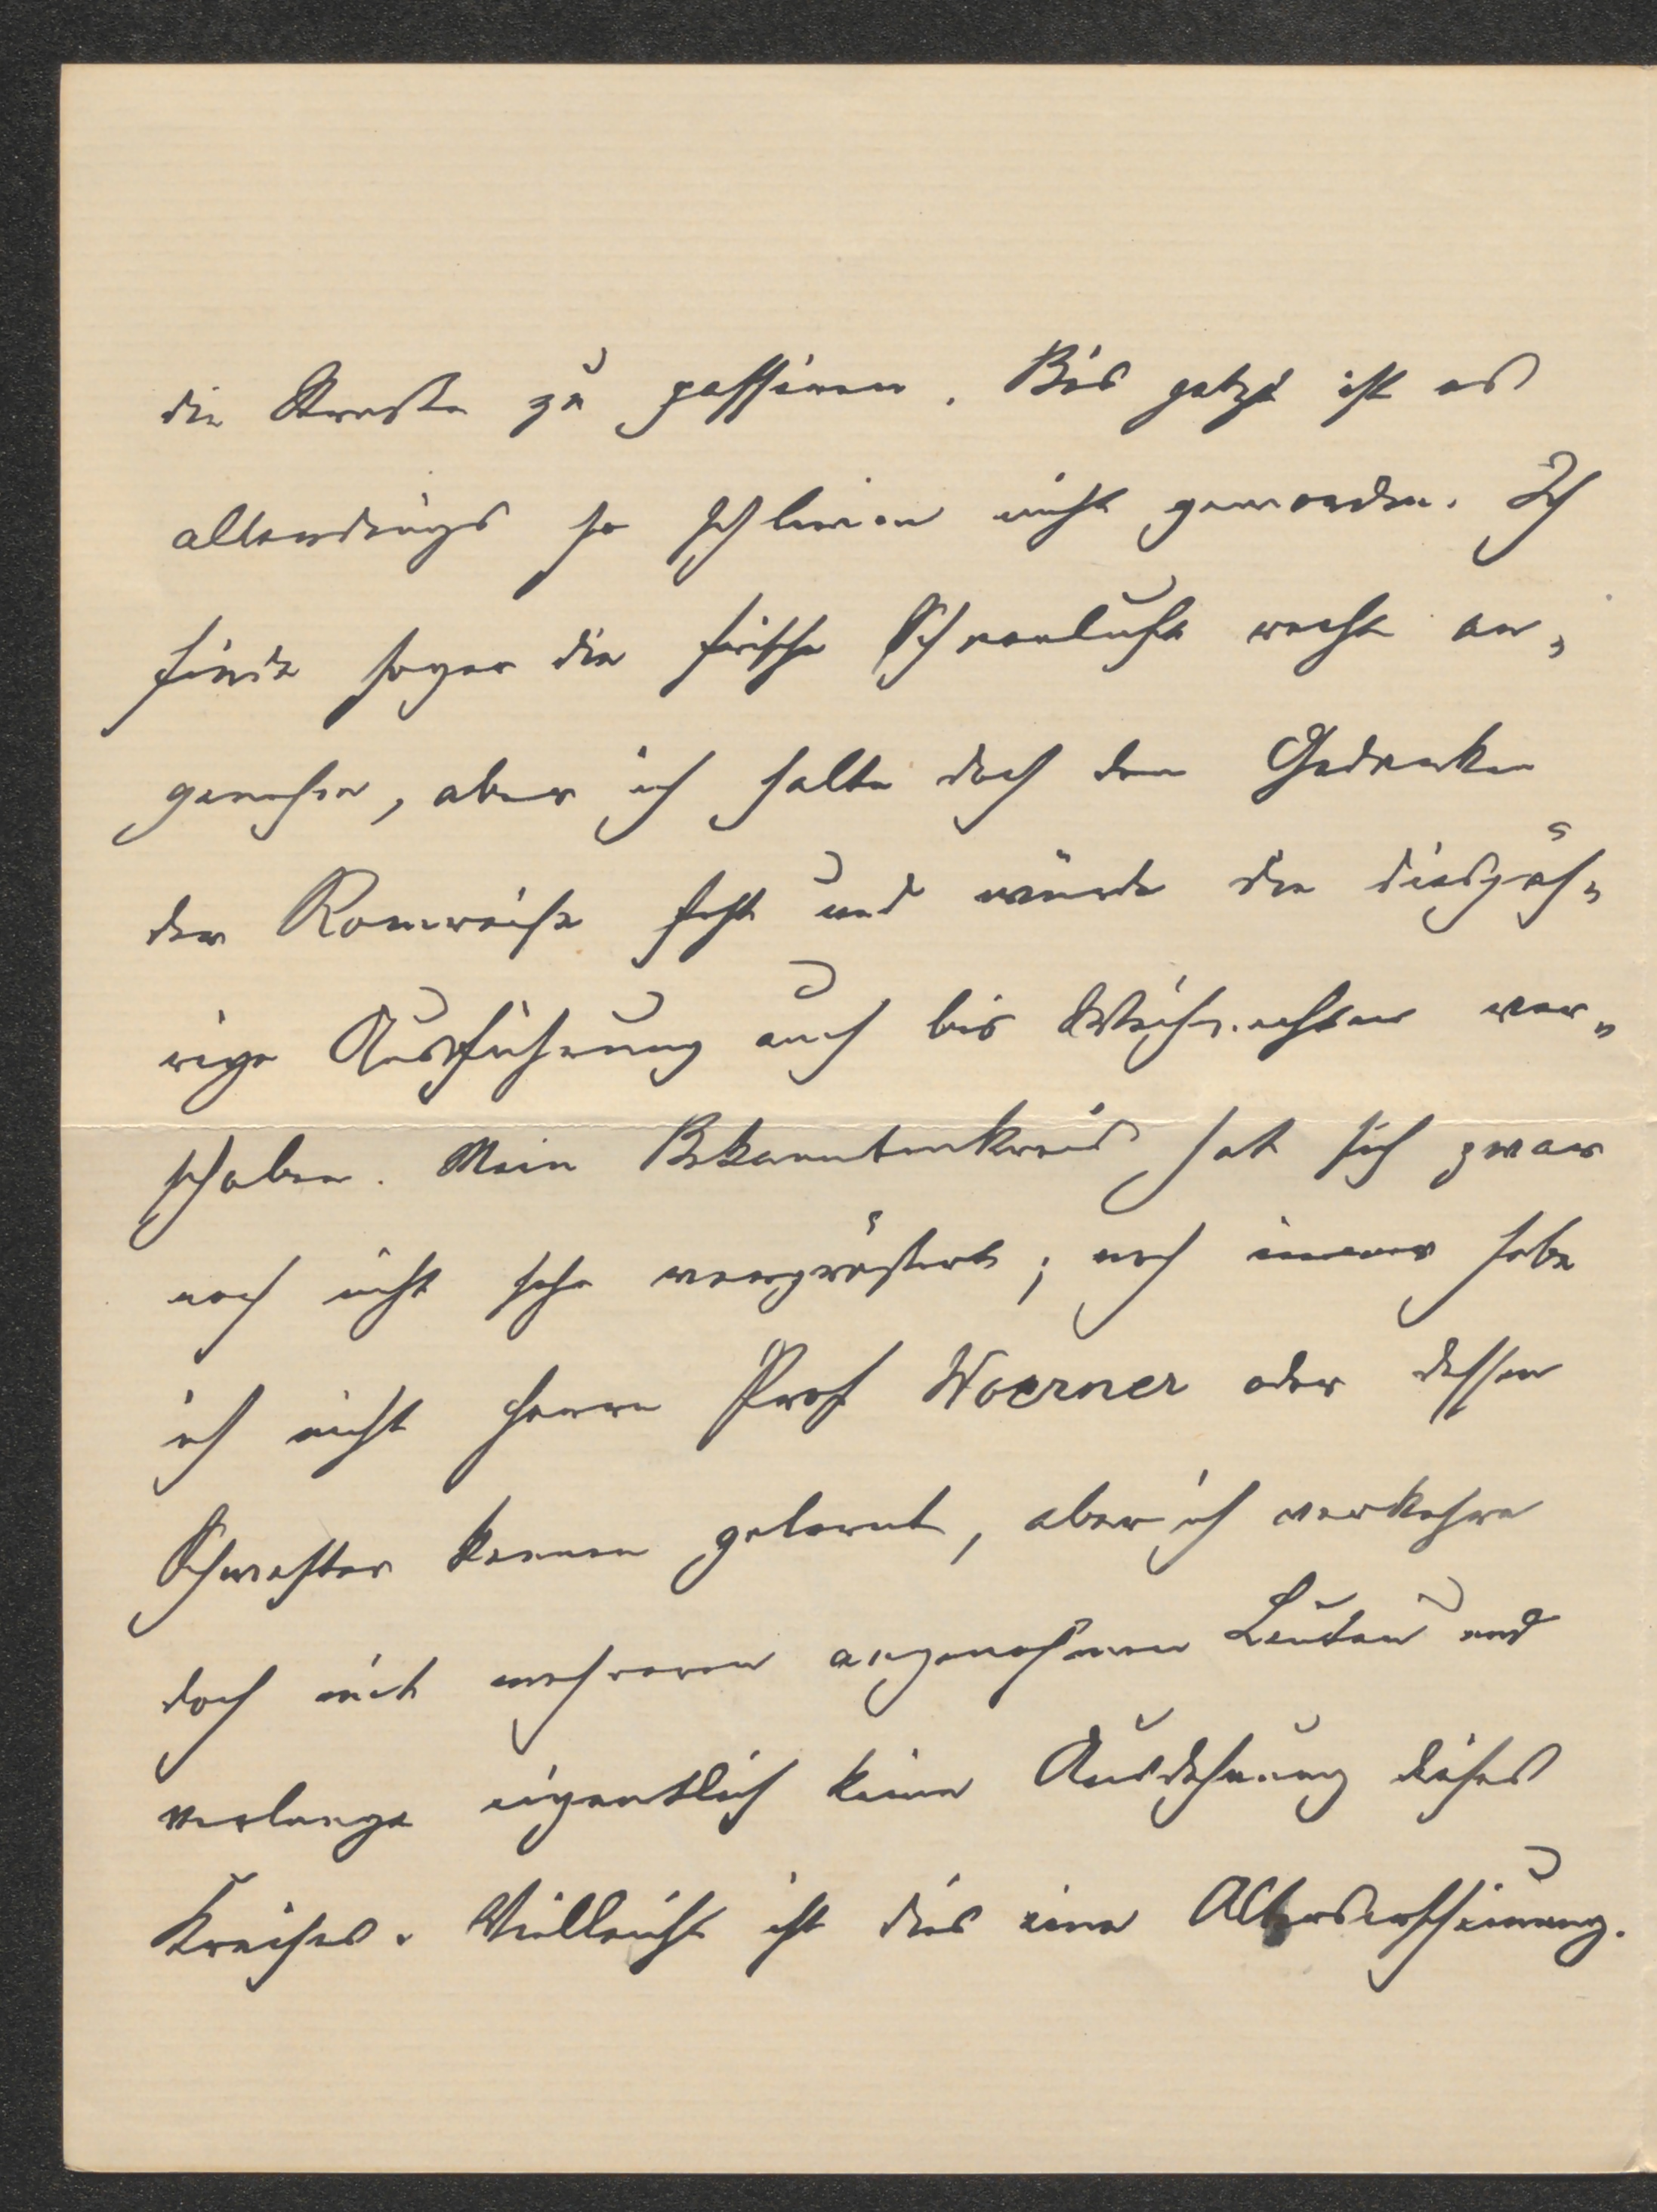 die Straße zu passieren. Bis jetzt ist es
allerdings so schlimm nicht geworden. Ich
finde sogar die frische Schneeluft recht an„
genehm, aber ich halte doch den Gedanken
der Romreise fest und würde die diesjäh„
rige Ausführung auch bis Weihnachten ver„
schoben. Mein Bekanntenkreis hat sich zwar
noch nicht sehr vergrößert; noch immer habe
ich nicht Herrn Prof Woerner oder dessen
Schwester kennen gelernt, aber ich verkehre
doch mit mehreren angenehmen Leuten und
verlange eigentlich keine Ausdehnung dieses
Kreises. Vielleicht ist dies eine Alterserscheinung.